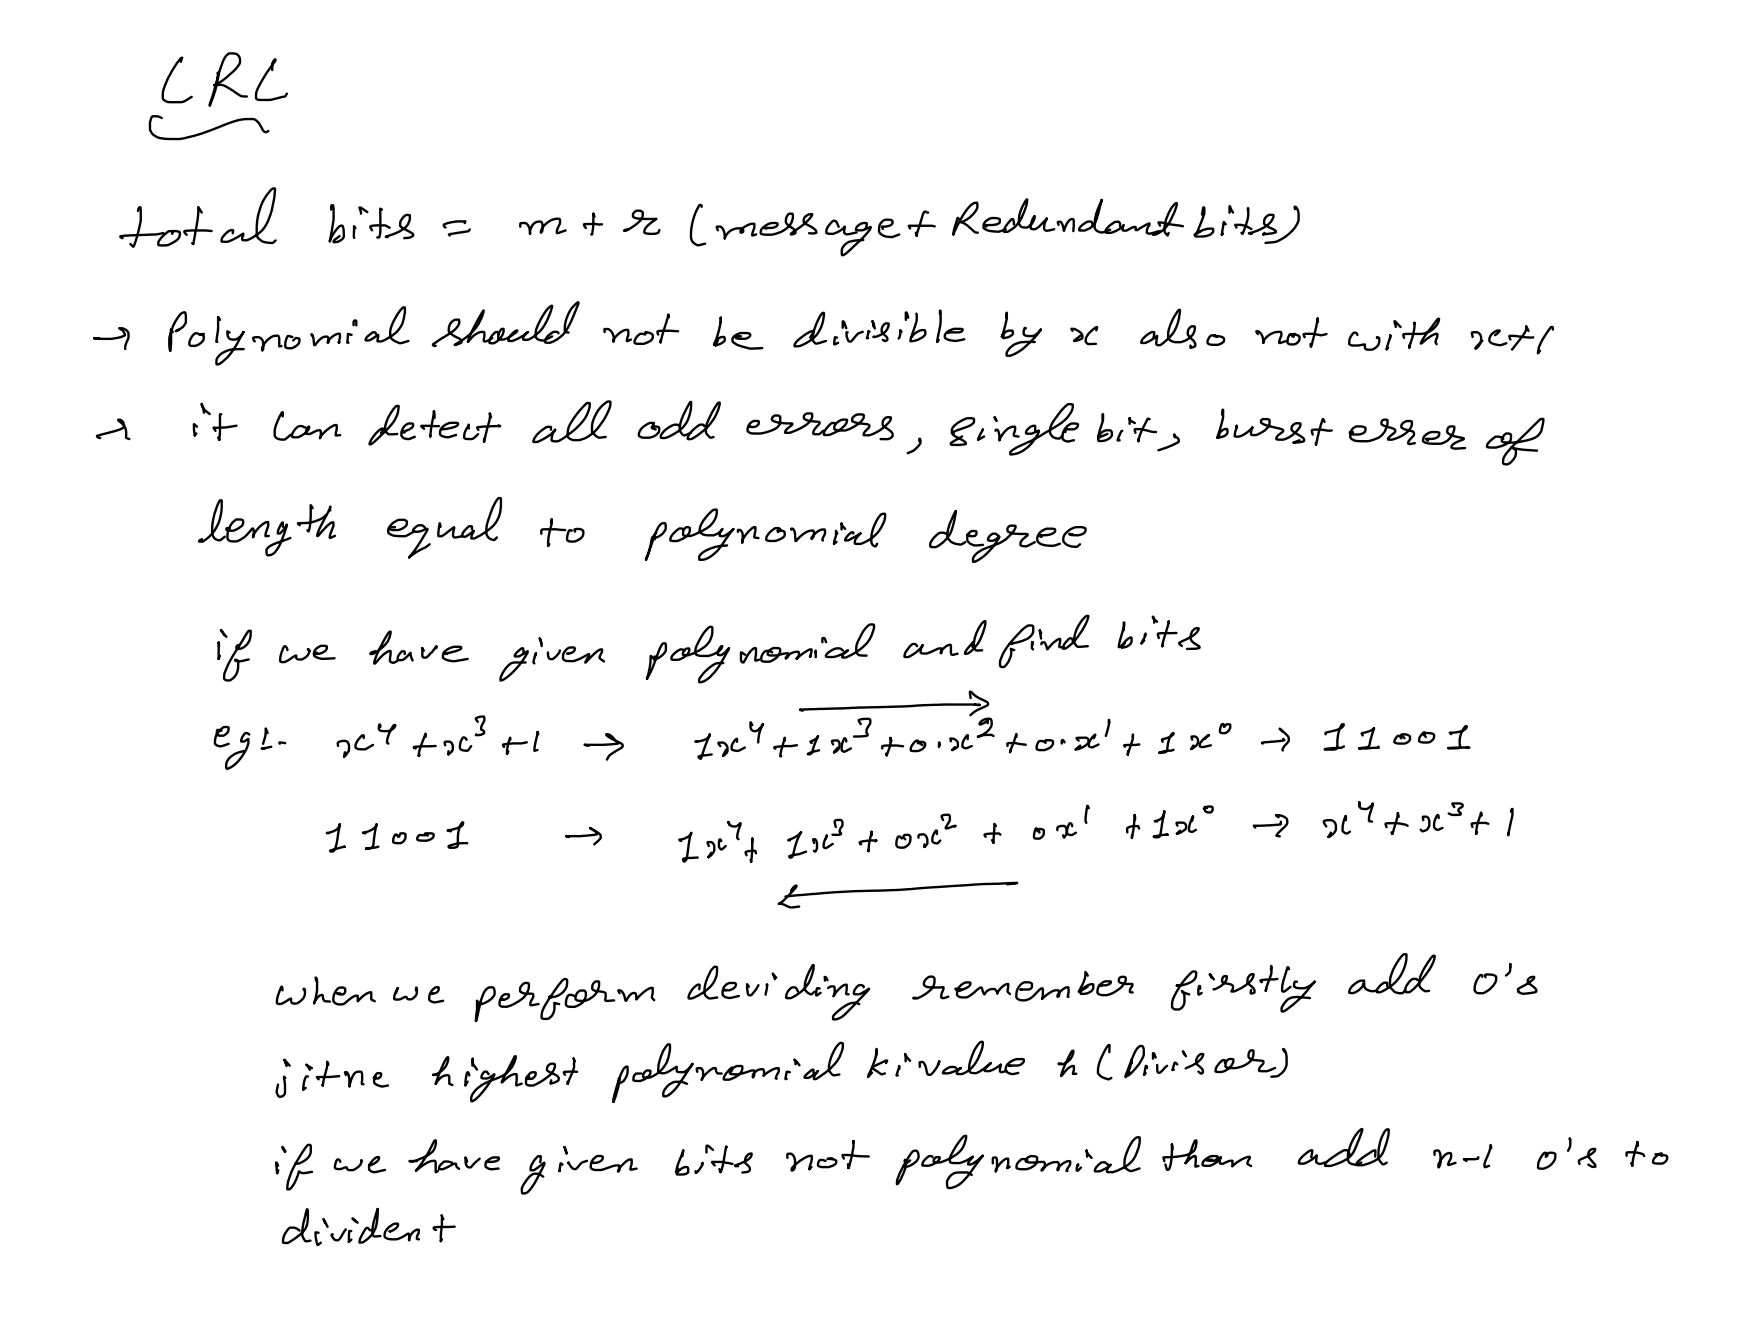 CRC
total bits = m + r (message + Redundant bits)
→ Polynomial should not be divisible by x also not with x+1
→ it can detect all odd errors, single bit, burst error of
length equal to polynomial degree
if we have given polynomial and find bits
eg1- x⁴ + x³ + 1 → 1x⁴ + 1x³ + 0·x² + 0·x¹ + 1x⁰ → 11001
11001 → 1x⁴ + 1x³ + 0x² + 0x¹ + 1x⁰ → x⁴ + x³ + 1
when we perform deviding remember firstly add 0's
jitne highest polynomial ki value h (Divisor)
if we have given bits not polynomial than add n-1 0's to
divident